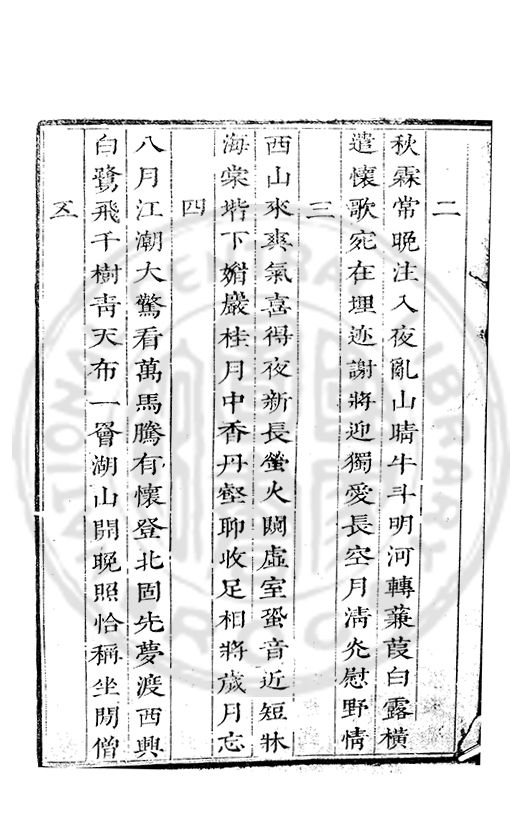 二
秋霖常晚注入夜亂山晴牛斗明河轉蒹葭白露橫
遣懷歌宛在埋迹謝將迎獨愛長空月清光慰野情
三
西山來爽氣喜得夜新長螢火闌虛室蛩音近短牀
海棠堦下媚巖桂月中香丹壑聊收足相將歲月忘
四
八月江潮大驚看萬馬騰有懷登北固先夢渡西興
白鷺飛千樹青天布一罾湖山開晚照恰稱坐閒僧
五